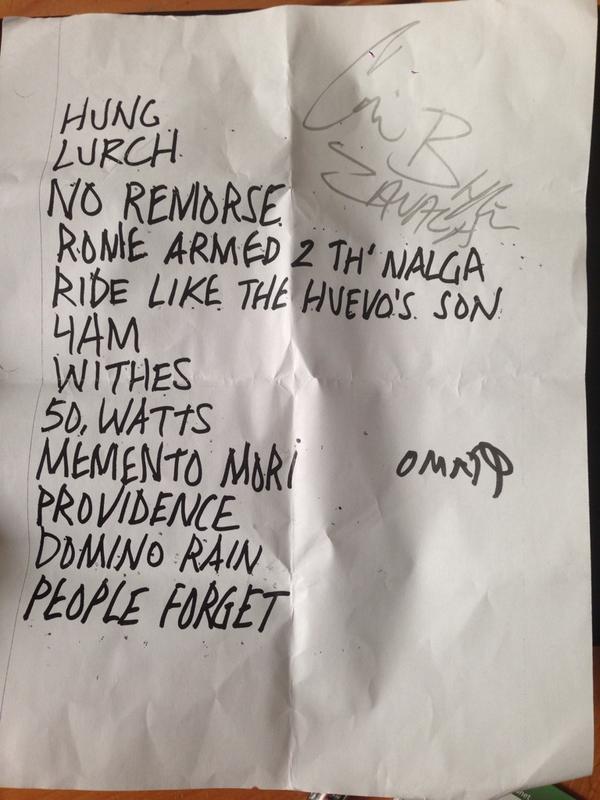 HUNG
LURCH
NO REMORSE
ROME ARMED 2 TH' NALGA
RIDE LIKE THE HUEVO'S SON
4AM
WITHES
50, WATTS
MEMENTO MORI
PROVIDENCE
DOMINO RAIN
PEOPLE FORGET